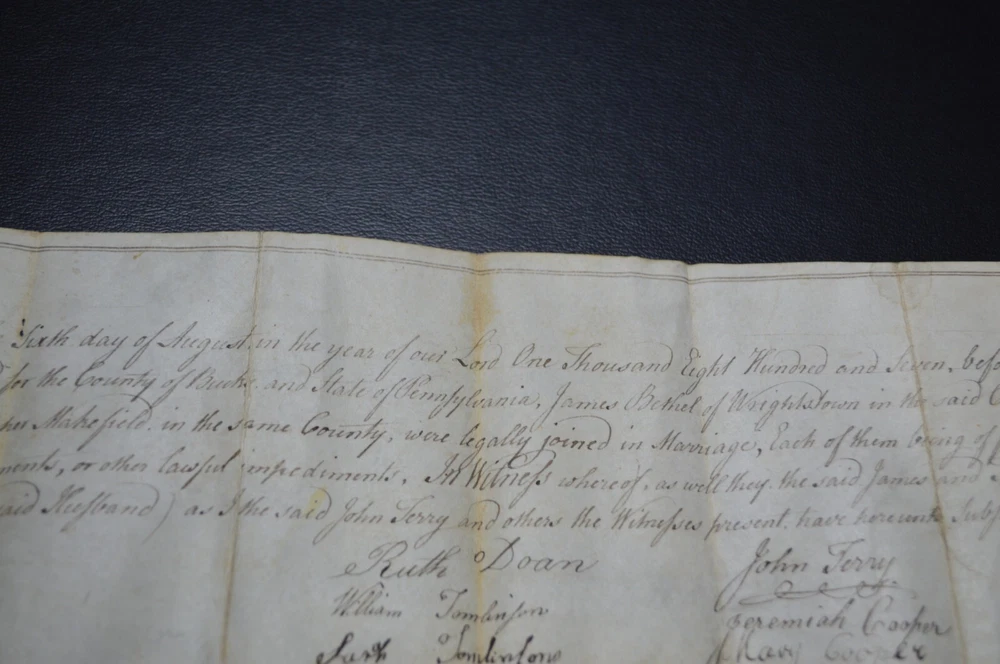 Sixth day of August in the year of our Lord One Thousand Eight Hundred and Seven, befo
for the County of Bucks and State of Pennsylvania, James Bethel of Wrightstown in the said C
Makefield in the same County, were legally joined in Marriage, Each of them being of
ments, or other lawful impediments, In Witness whereof, as well they the said James and
said Husband) as I the said John Terry and others the Witnesses present have hereunto Subs
Ruth Doan John Terry
William Tomlinson Jeremiah Cooper
Sarah Tomlinson Mary Cooper